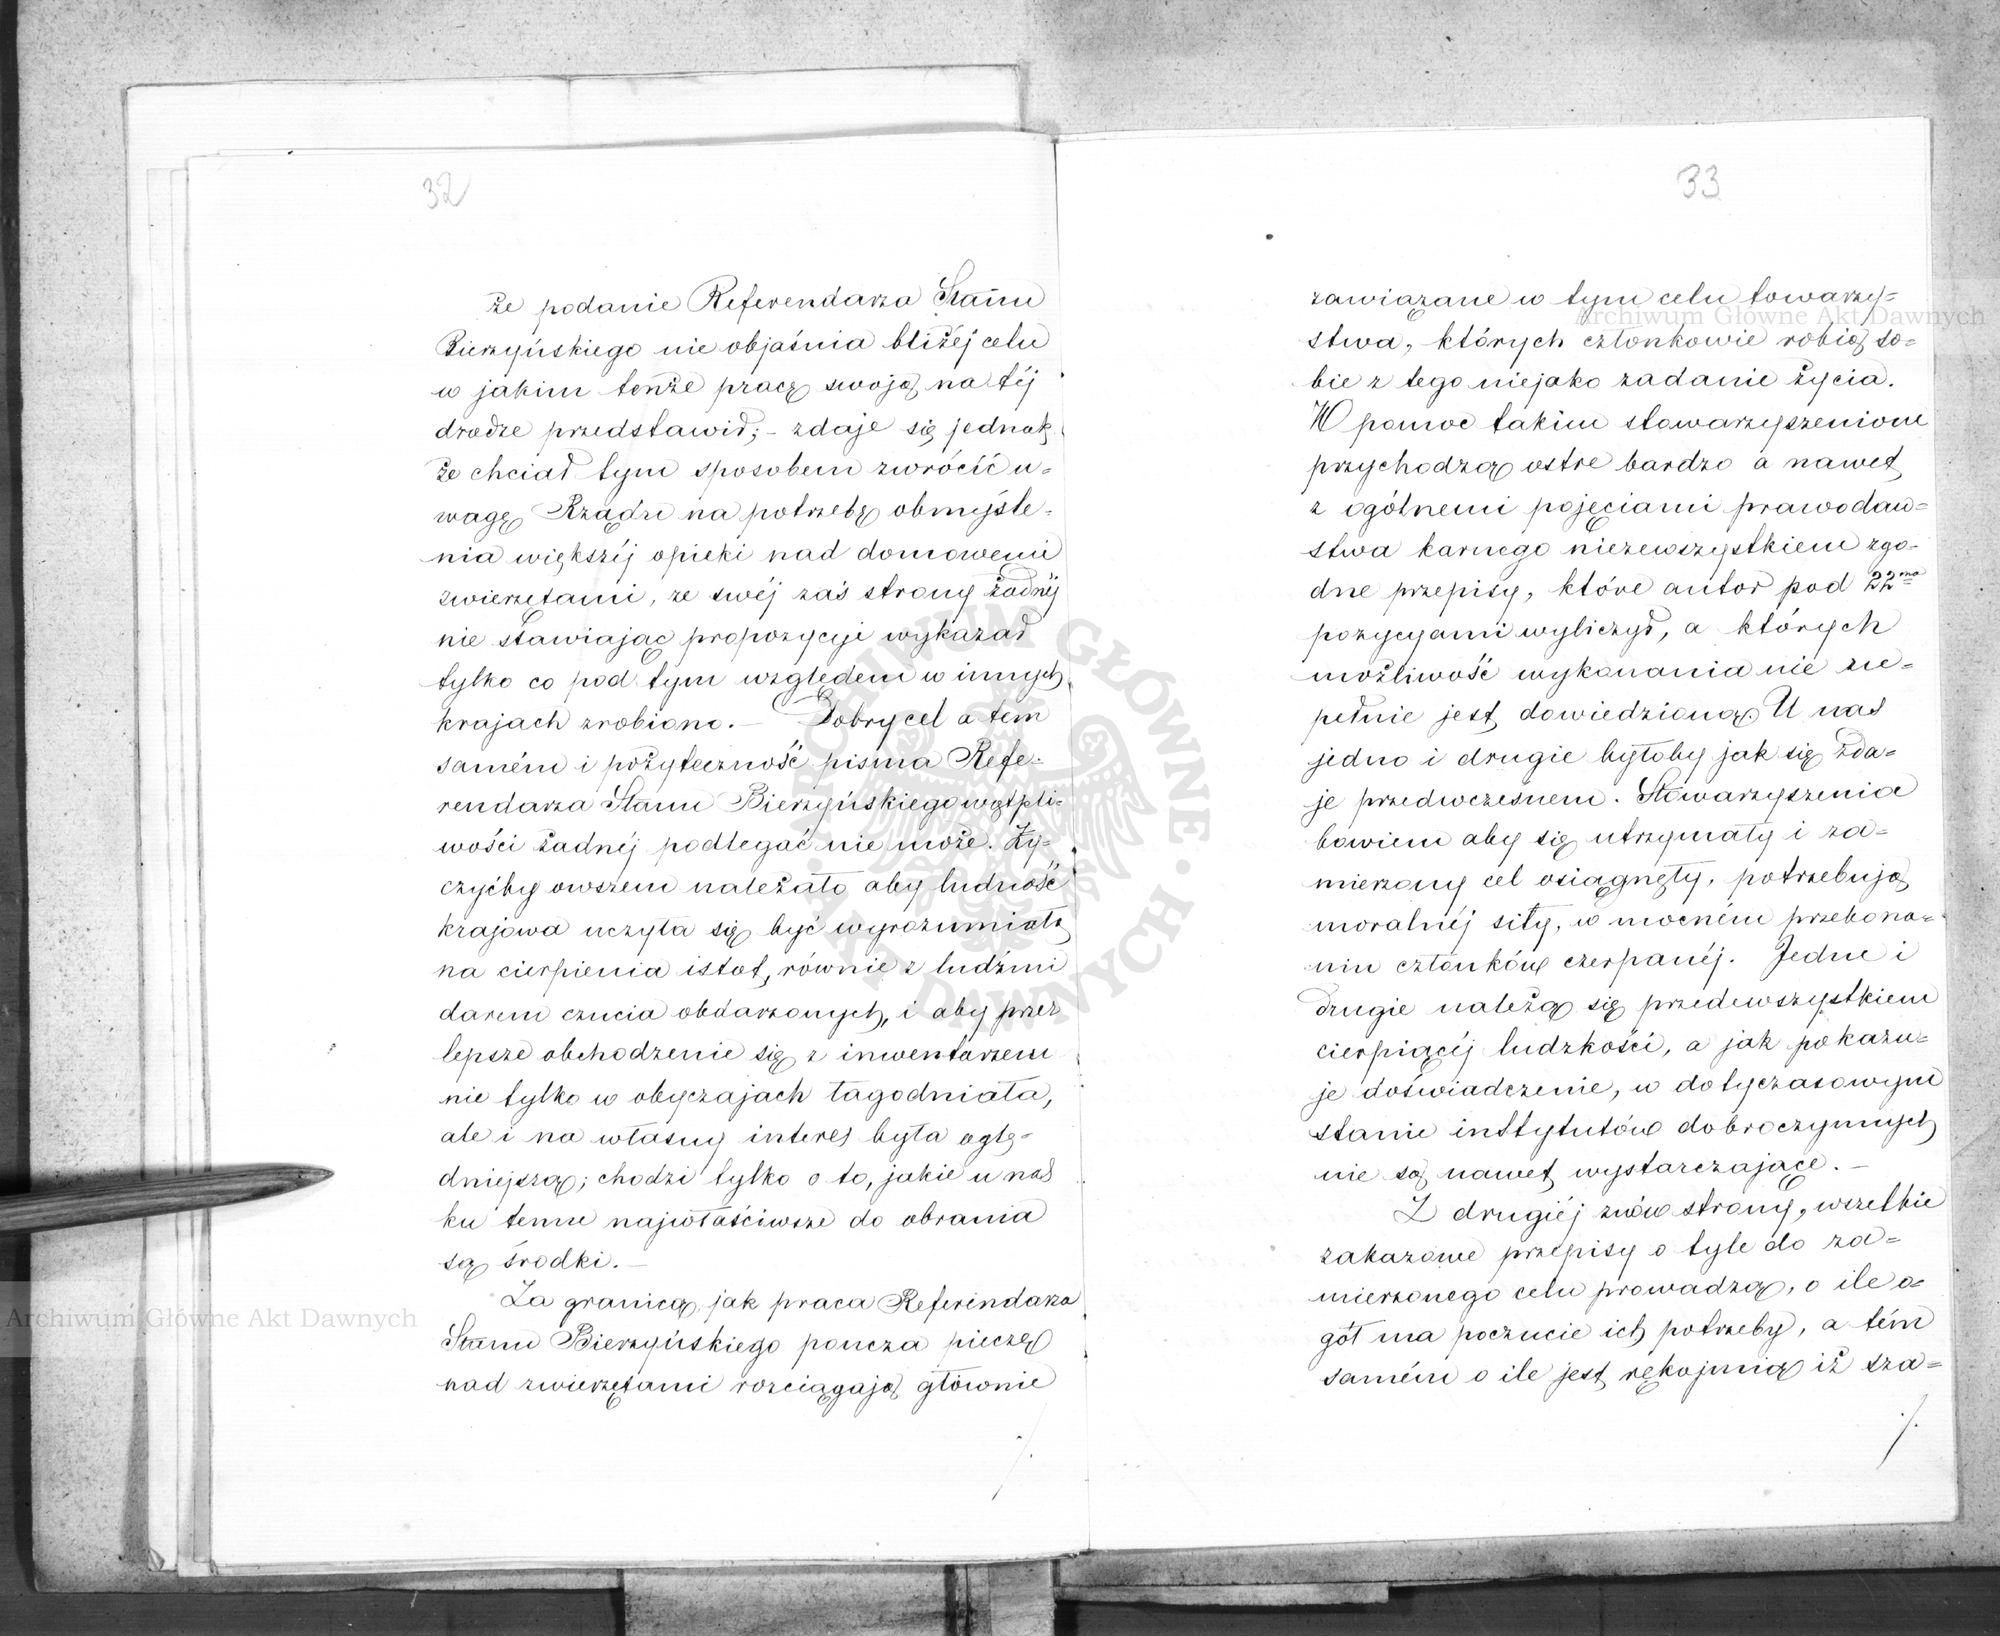 32
że podanie Referendarza Stanu
Bierzyńskiego nie objaśnia bliżéj celu
w jakim tenże pracę swoją na téj
drodze przedstawił; - zdaje się jednak
że chciał tym sposobem zwrócić u=
wagę Rządu na potrzebę obmyśle=
nia większéj opieki nad domowemi
zwierzętami, ze swéj zaś strony żadnéj
nie stawiając propozycyi wykazał
tylko co pod tym względem w innych
krajach zrobiono. — Dobry cel a tem
samém i pożyteczność pisma Refe=
rendarza Stanu Bierzyńskiego wątpli=
wości żadnéj podlegać nie może. Ży=
czyćby owszem należało aby ludność
krajowa uczyła się być wyrozumiałą
na cierpienia istot, równie z ludźmi
darem czucia obdarzonych, i aby przez
lepsze obchodzenie się z inwentarzem
nie tylko w obyczajach łagodniała,
ale i na własny interes była oglę=
dniejszą; chodzi tylko o to, jakie u nas
ku temu najwłaściwsze do obrania
są środki. —
Za granicą, jak praca Referendarza
Stanu Bierzyńskiego poucza pieczę
nad zwierzętami rozciągają głównie
./.
33
zawiązane w tym celu towarzy=
stwa, których członkowie robią so=
bie z tego niejako zadanie życia.
W pomoc takim stowarzyszeniom
przychodzą ostre bardzo a nawet
z ogólnemi pojęciami prawodaw=
stwa karnego niezewszystkiem zgo=
dne przepisy, które autor pod 22ma
pozycyami wyliczył, a których
możliwość wykonania nie zu=
pełnie jest dowiedzioną. U nas
jedno i drugie byłoby jak się zda=
je przedwczesnem. Stowarzyszenia
bowiem aby się utrzymały i za=
mierzony cel osiągnęły, potrzebują
moralnéj siły, w mocném przekona=
niu członków czerpanéj. Jedne i
drugie należą się przedewszystkiem
cierpiącéj ludzkości, a jak pokazu=
je doświadczenie, w dotyczasowym
stanie instytutów dobroczynnych
nie są nawet wystarczające. —
Z drugiéj znów strony, wszelkie
zakazowe przepisy o tyle do za=
mierzonego celu prowadzą, o ile o=
gół ma poczucie ich potrzeby, a tém
samém o ile jest rękojmią iż sza=
./.
Archiwum Główne Akt Dawnych
Archiwum Główne Akt Dawnych
ARCHIWUM GŁÓWNE · AKT DAWNYCH ·